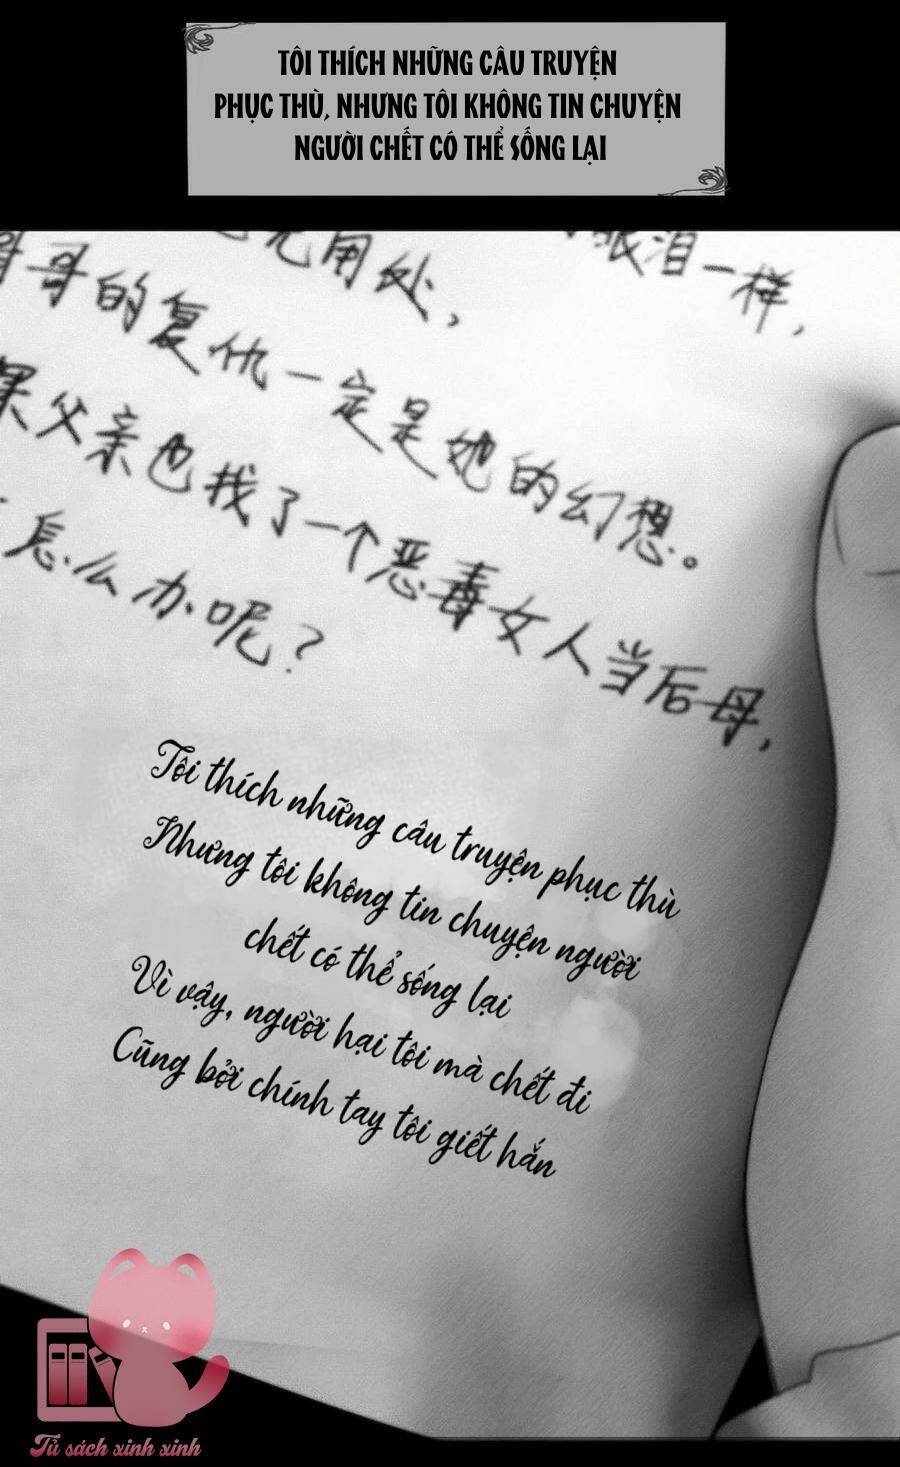 TÔI THÍCH NHỮNG CÂU TRUYỆN
PHỤC THÙ, NHƯNG TÔI KHÔNG TIN CHUYỆN
NGƯỜI CHẾT CÓ THỂ SỐNG LẠI
用处，
眼泪一样，
哥的复仇一定是她的幻想。
果父亲也找了一个恶毒女人当后母，
怎么办呢？
Tôi thích những câu truyện phục thù
Nhưng tôi không tin chuyện người
chết có thể sống lại
Vì vậy, người hại tôi mà chết đi
Cũng bởi chính tay tôi giết hắn
Tủ sách xinh xinh